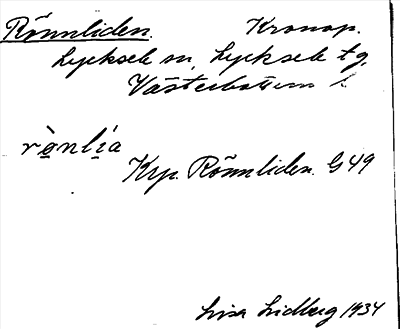 Rönnliden. Kronop.
Lycksele sn, Lycksele tg,
Västerbottens l.
rò̱nlí̱a
Krp. Rönnliden. G 49
Lisa Lidberg 1934